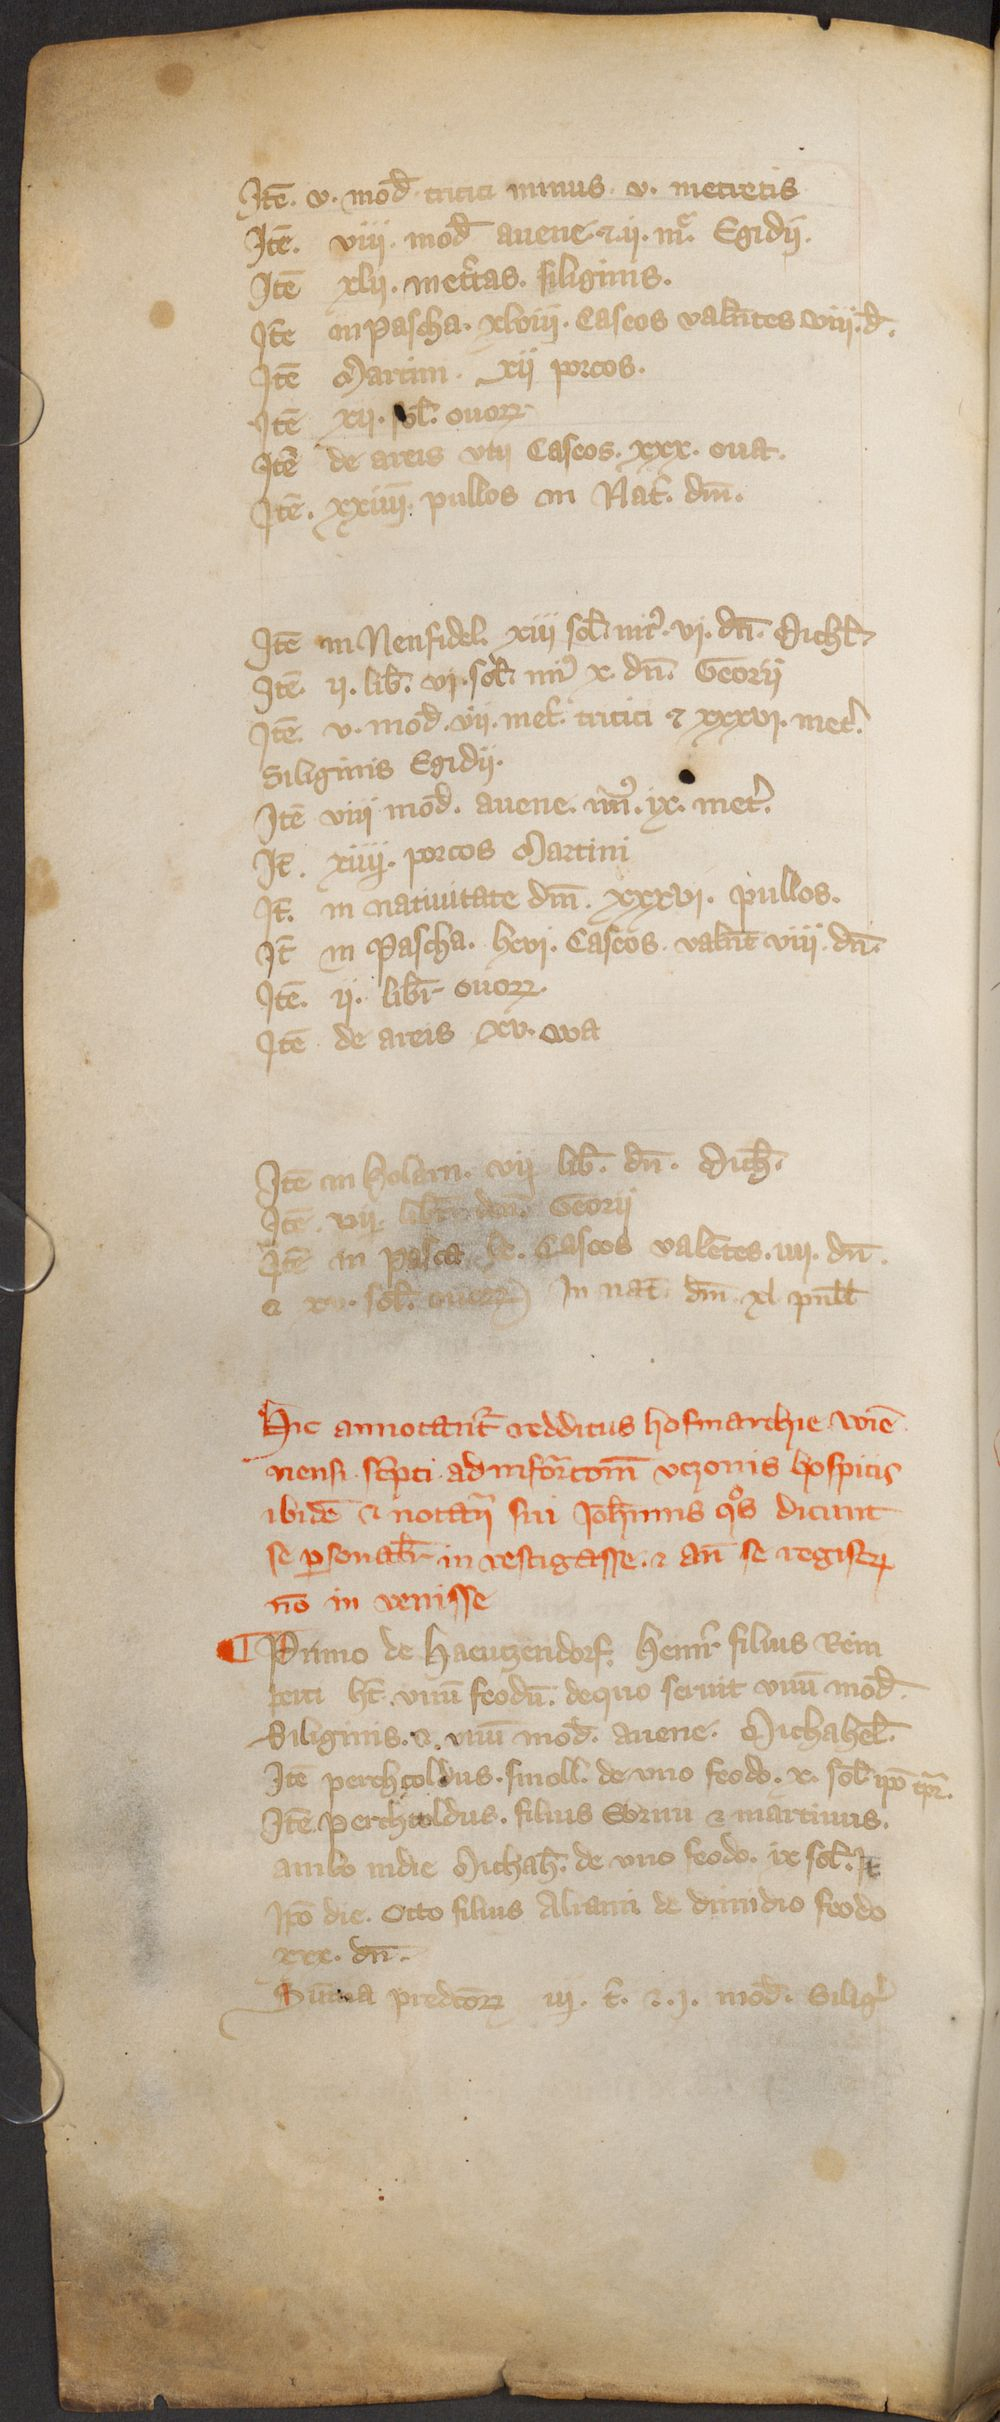 Itē. v. mod̄ tritici minus. v. metretis
Itē. viii. mod̄ auene. ⁊ .ii. m̄. Egidij.
Itē xlij. met̄tas. siliginis.
Itē in Pascha. xlviij. Caseos valn̄tes viij. d̄.
Itē Martini. xij porcos.
Itē xij. sol̄. ouoꝝ
Itē de areis vtij Caseos. xxx. oua.
Itē. xxiiij. pullos in Nat̄. dn̄i.
Itē in Neusidel. xiij sol̄. mi᷒. vj. dn̄. Michl̄.
Itē. ij. lib̄. vj. sol̄. mi᷒ x. dn̄. Georij
Itē. v. mod̄. vij. met̄. tritici ⁊ xxxvj. met̄.
Siliginis Egidij.
Itē viij mod̄. auene. mi᷒. ix. met̄.
It̄. xiiij. porcos Martini
It̄. in natiuitate dn̄i. xxxvj. pullos.
It̄ in Pascha. lxvj. Caseos. valn̄t viij. dn̄.
Itē. ij. libr̄ ouoꝝ.
Itē de areis xv. oua
Itē in kolarn. vij lib̄. dn̄. Mich̄.
Itē. vij. libr̄. dn̄. Georij
Itē in pasca lx. Caseos valētes. iiij. dn̄.
⁊ xv. sol̄. ouoꝝ In nat̄. dn̄i xl pull̄
Hic annotant̄ redditus hofmarchie wiē
nensi. sc̄pti ad infor̄com̄ vczonis hospitis
ibidē ⁊ notarij sui Joh̄nnis qͦs dicunt
se ꝑsonalr̄ in vestigasse. ⁊ an̄ se registrꝝ
nō in venisse
Primo de Haeuczendorf. Heinr̄ filius Rein
perti ht̄. vnū feodū. dequo seruit vnū mod̄.
Siliginis. ⁊. vnū mod̄. auene. Michahel̄.
Itē perchtoldus. smoll. de vno feodo. x. sol̄ ipō tp̄r.
Itē. Perchtoldus. filius Eorini ⁊ martinus.
ambo indie Michah̄. de vno feodo. ix sol̄. It̄
Ipō die. Otto filius Alrami de dimidio feodo
xxx. dn̄.
Sūma predcōꝝ iij. t̄. ⁊. j. mod̄. Siliḡ